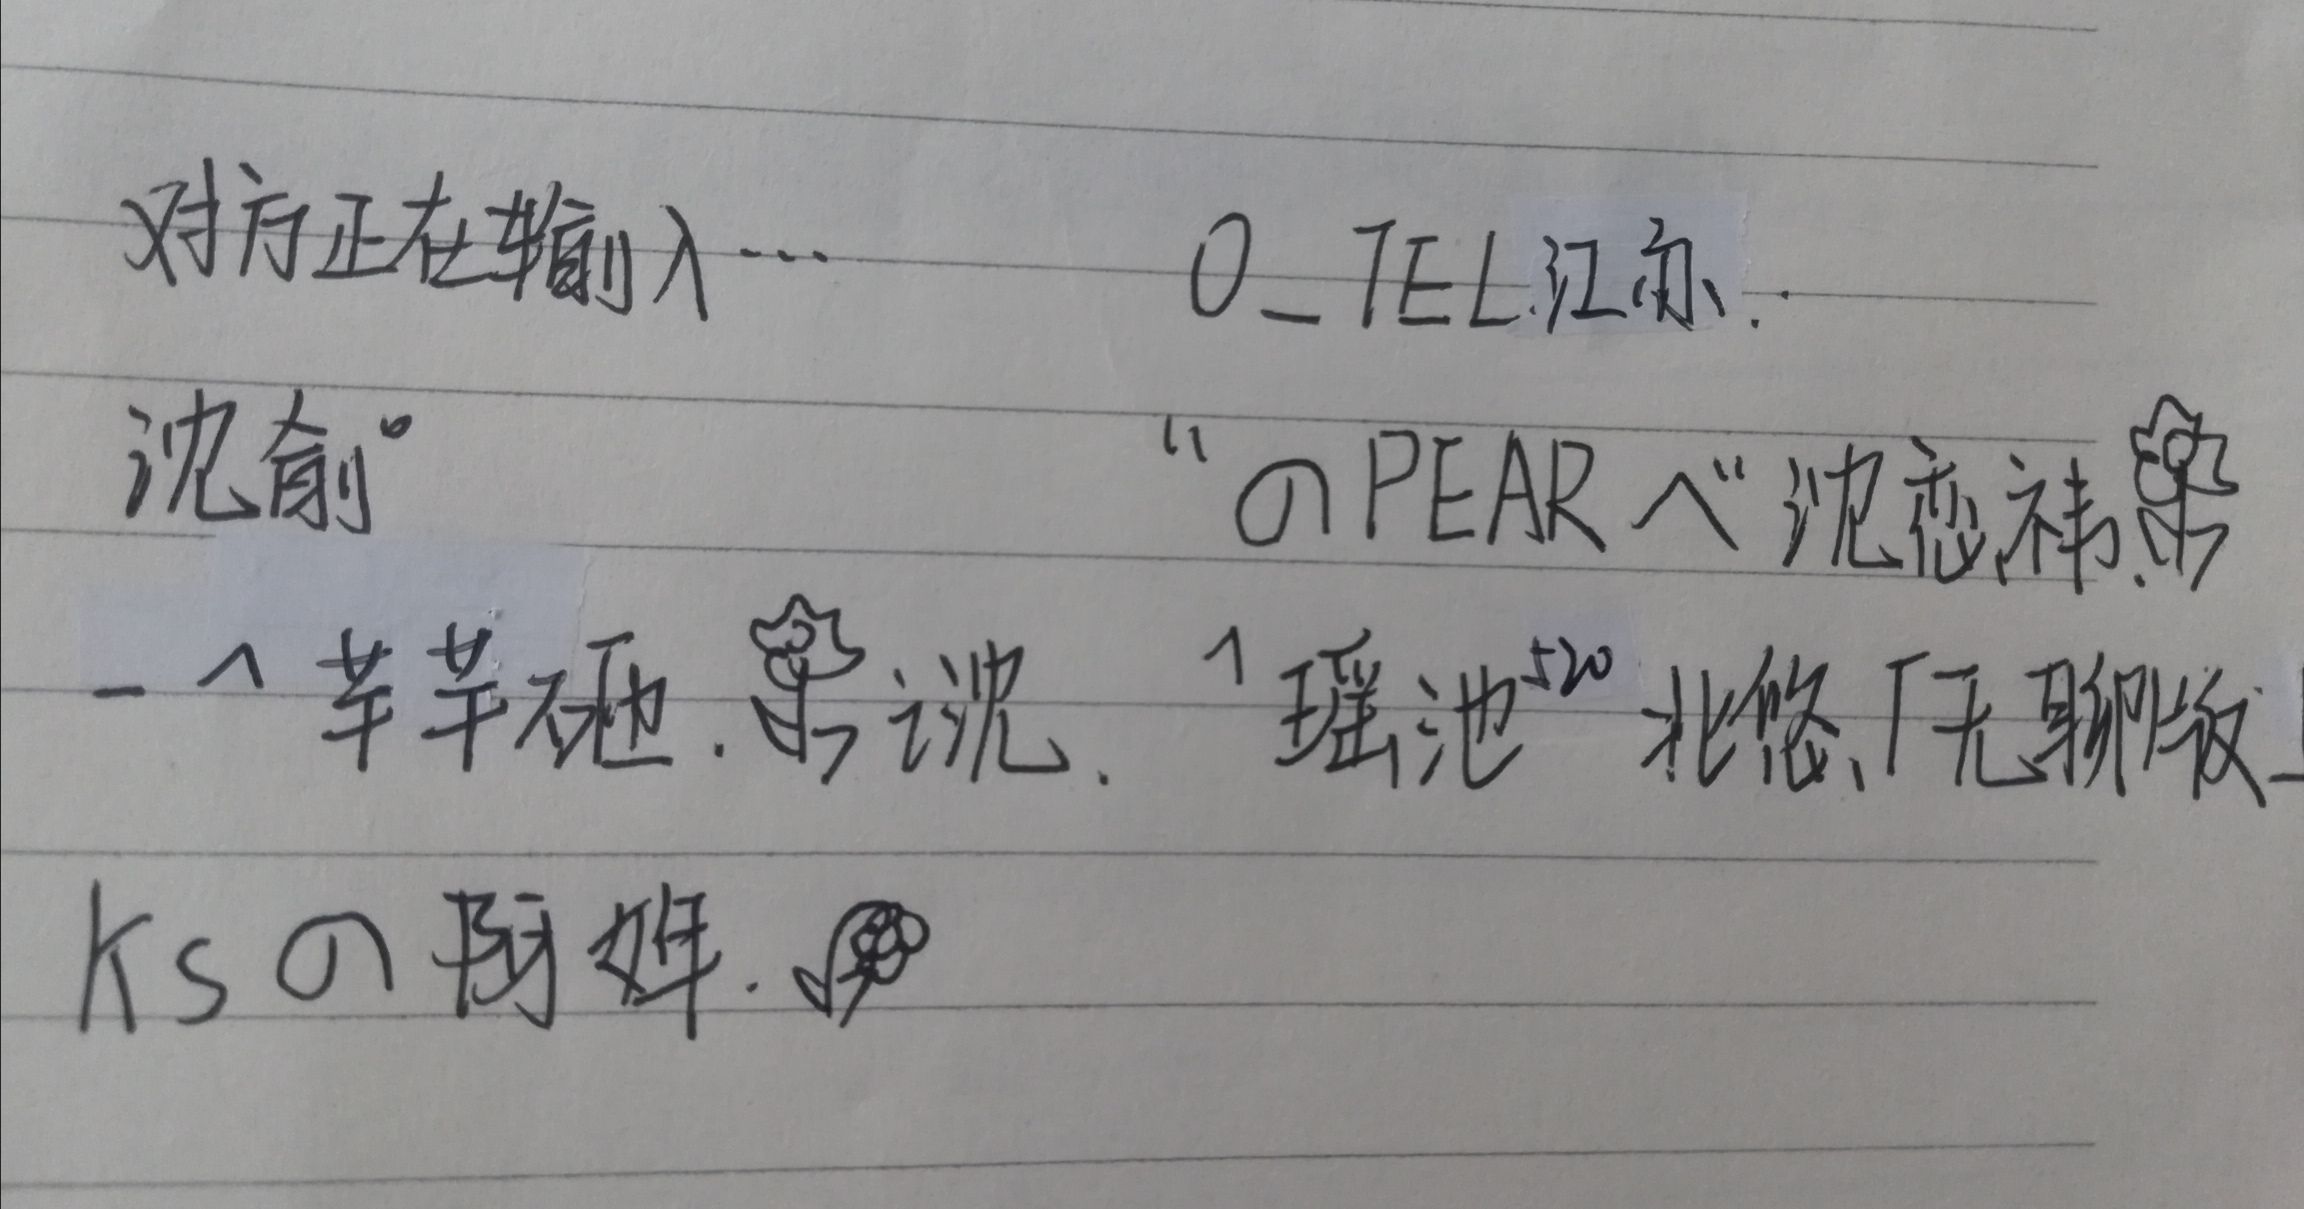 对方正在输入… O_TEL江亦..
沈俞° "のPEARべ"沈恋祎.
一^芊芊砸. 讠沈. ^瑶池520 北悠、「无聊版」
Ksの